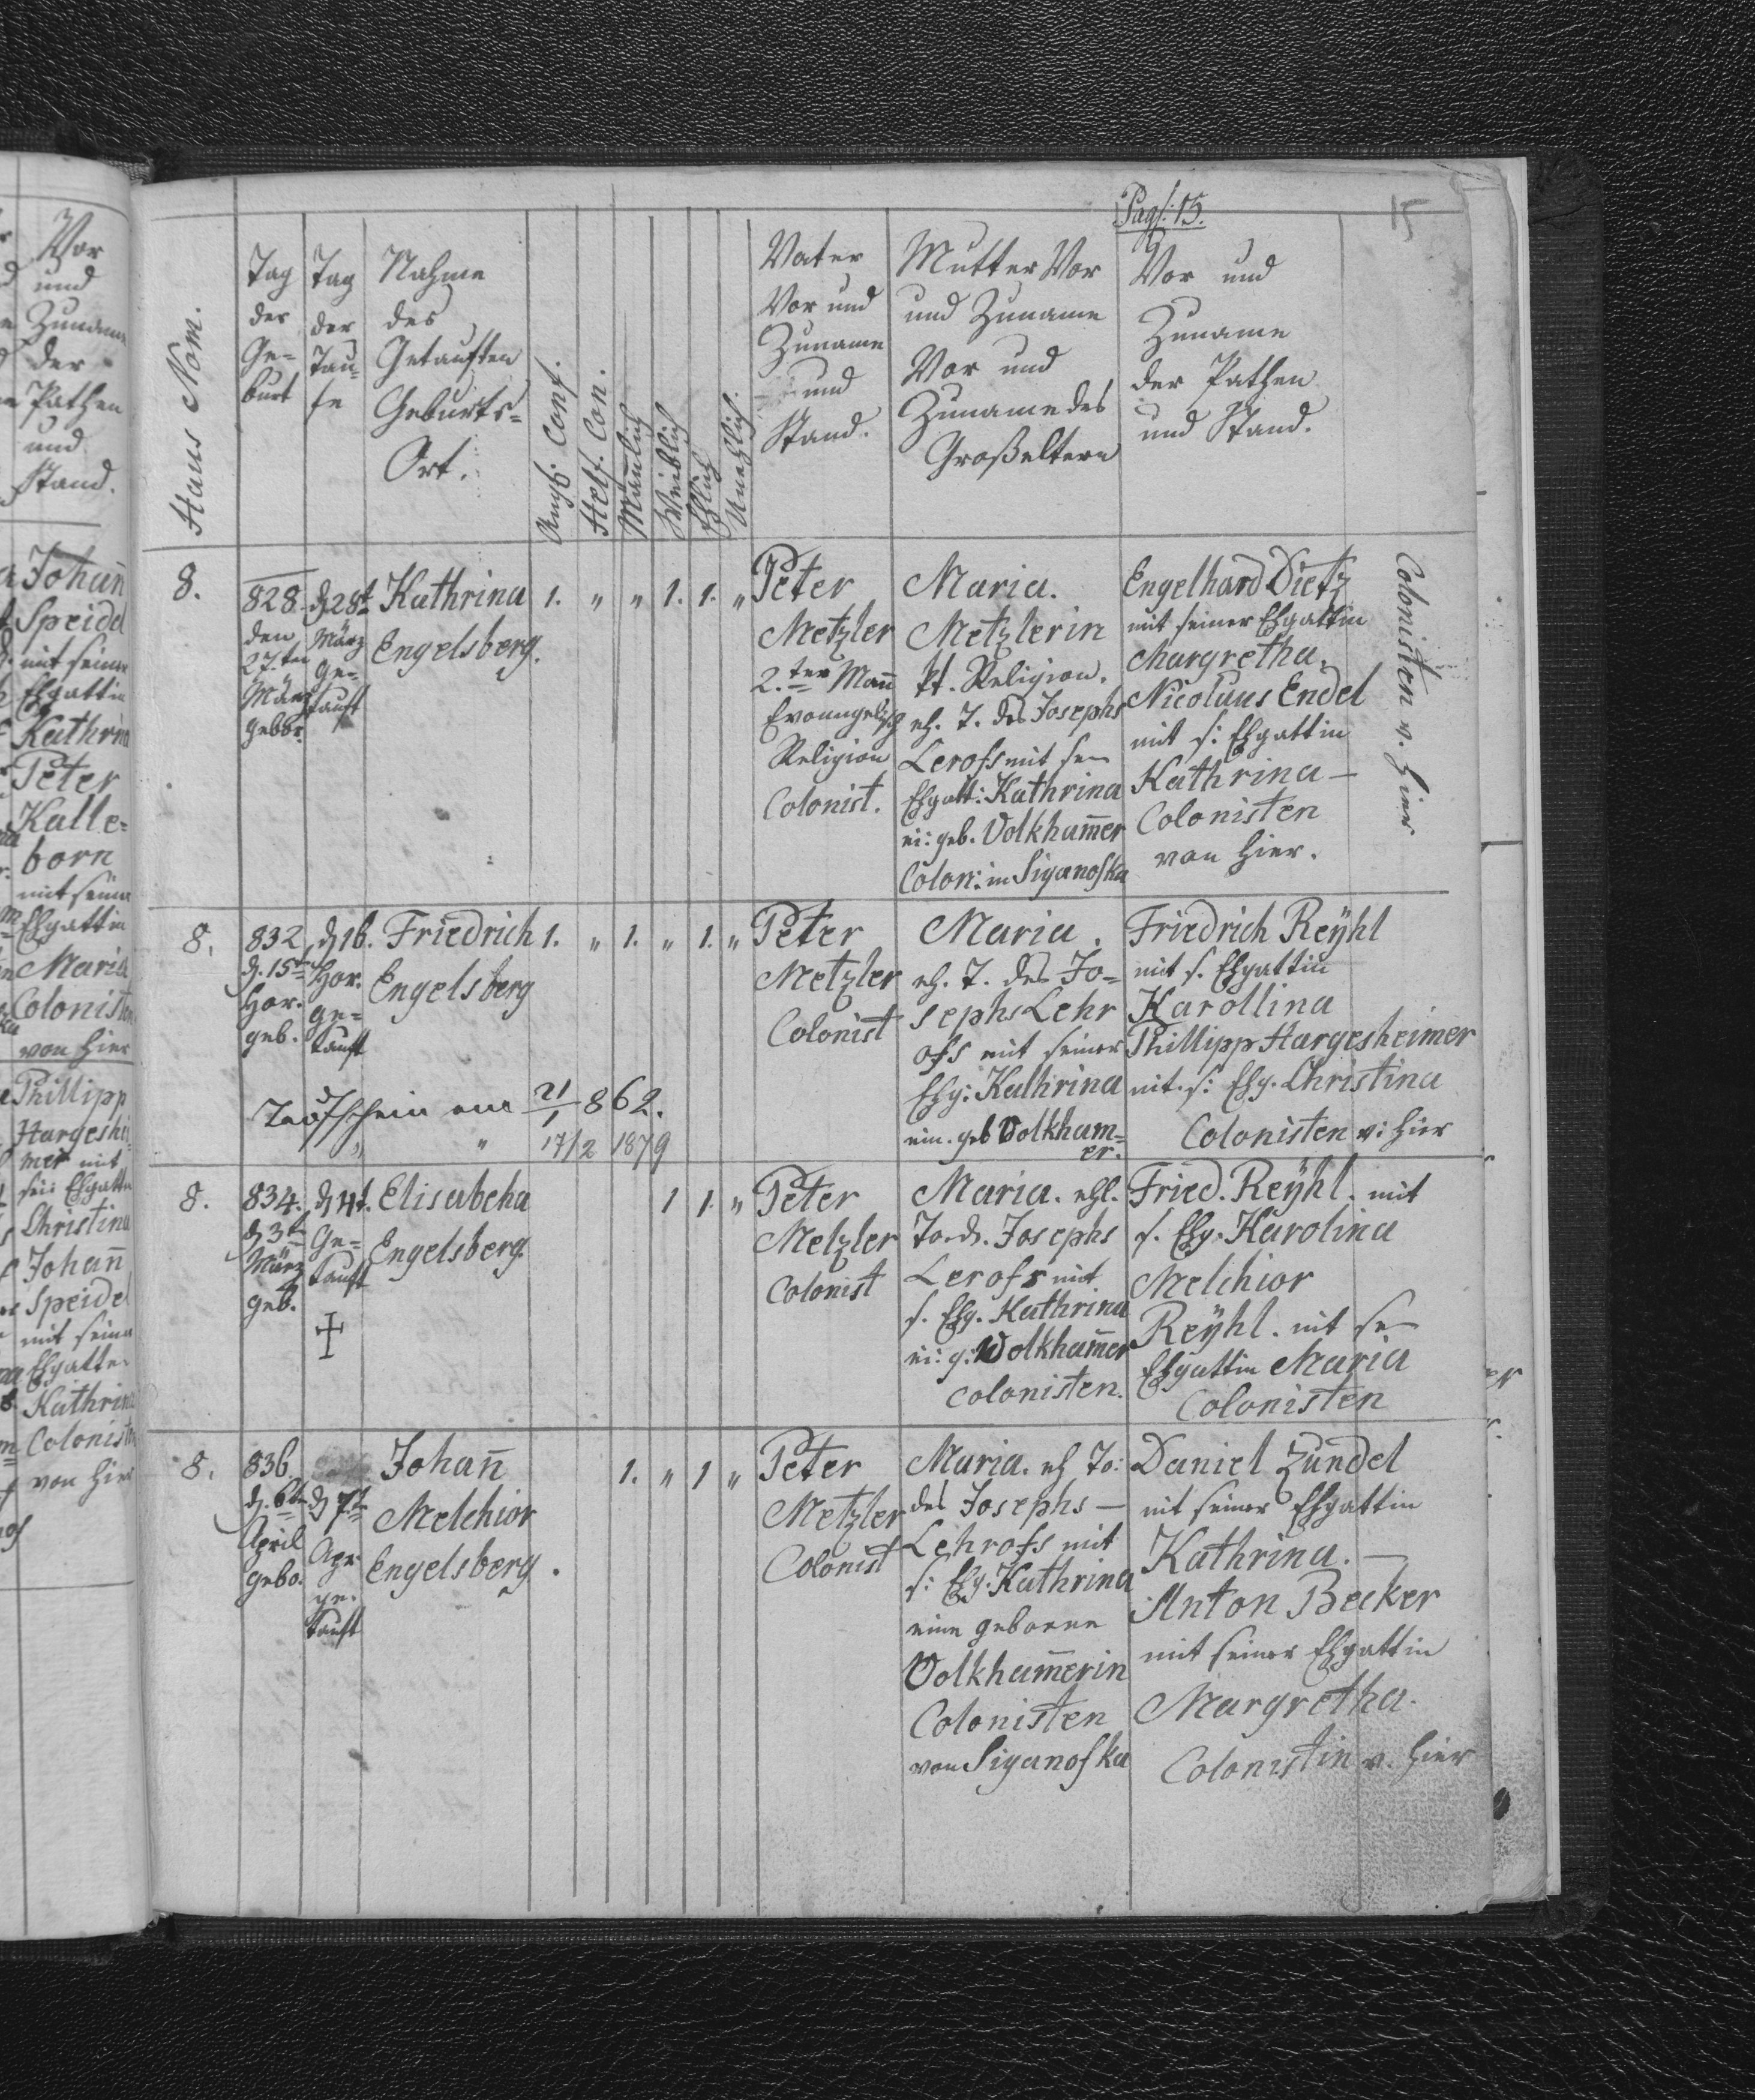 Pag: 15.
15
Haus Nom.
Tag
der
Ge-
burt
Tag
der
Tau-
fe
Nahme
des
Getauften
Geburts-
Ort.
Augsb. Conf.
Helf. Con.
Mäñlich
Weiblich
Ehlich
Unehlich.
Vater
Vor und
Zuname
und
Stand.
Mutter Vor
und Zuname
Vor und
Zuname des
Großeltern
Vor und
Zuname
der Pathen
und Stand.
8.
828.
den
27.ten
März
gebor.
d 28t
März
ge-
tauft
Kathrina
Engelsberg.
1. " " 1. 1. "
Peter
Metzler
2.ter Mañ
Evangelisch
Religion
Colonist.
Maria.
Metzlerin
kt. Religion.
eh. T. des Josephs
Lerofs mit sn
Ehgatt: Kathrina
ei: geb. Volkham̄er
Colon: in Siganofka
Engelhard Dietz
mit seiner Ehgattin
Margretha.
Nicolaus Endel
mit s: Ehgattin
Kathrina —
Colonisten
von hier.
Colonisten v. hier
8.
832
d. 15t
Hor.
geb.
d 16.
Hor.
ge-
tauft
Friedrich
Engelsberg
1. " 1. " 1. "
Peter
Metzler
Colonist
Maria.
eh. T. des Jo-
sephs Lehr
ofs mit seiner
Ehg: Kathrina
ein. geb Volkham-
er.
Friedrich Reÿhl
mit s. Ehgattin
Karollina
Phillipp Hargesheimer
mit. s: Ehg. Christina
Colonisten v: hier
Taufschein am 21/1 862.
" " 17/2 1879
8.
834.
d 3t
März
geb.
d 4t.
Ge-
tauft
Elisabeha
Engelsberg.
1 1. "
Peter
Metzler
Colonist
Maria. ehl.
To. d. Josephs
Lerofs mit
s. Ehg. Kathrina
ei: g: Wolkham̄er
colonisten.
Fried. Reÿhl. mit
s. Ehg. Karolina
Melchior
Reÿhl. mit sn
Ehgattin Maria
Colonisten
8.
836.
d. 6t
April
gebo.
d 7t
Apr
ge.
tauft
Johañ
Melchior
Engelsberg.
1. " 1 "
Peter
Metzler
Colonist
Maria. eh To:
des Josephs —
Lehrofs mit
s: Ehg: Kathrina
eine geborne
Volkham̄erin
Colonisten
von Siganofka
Daniel Zundel
mit seiner Ehgattin
Kathrina. —
Anton Becker
mit seiner Ehgattin
Margretha.
Colonistin v. hier
Vor
und
Zuname
der
Pathen
und
Stand.
Johañ
Speidel
mit seiner
Ehgattin
Kathrina
Peter
Kalle-
born
mit seiner
Ehgattin
Maria
Colonisten
von hier
Phillipp
Hargeshei-
mer mit
sei: Ehgattin
Christina
Johañ
Speidel
mit seiner
Ehgatte.
Kathrina
Colonisten
von hier